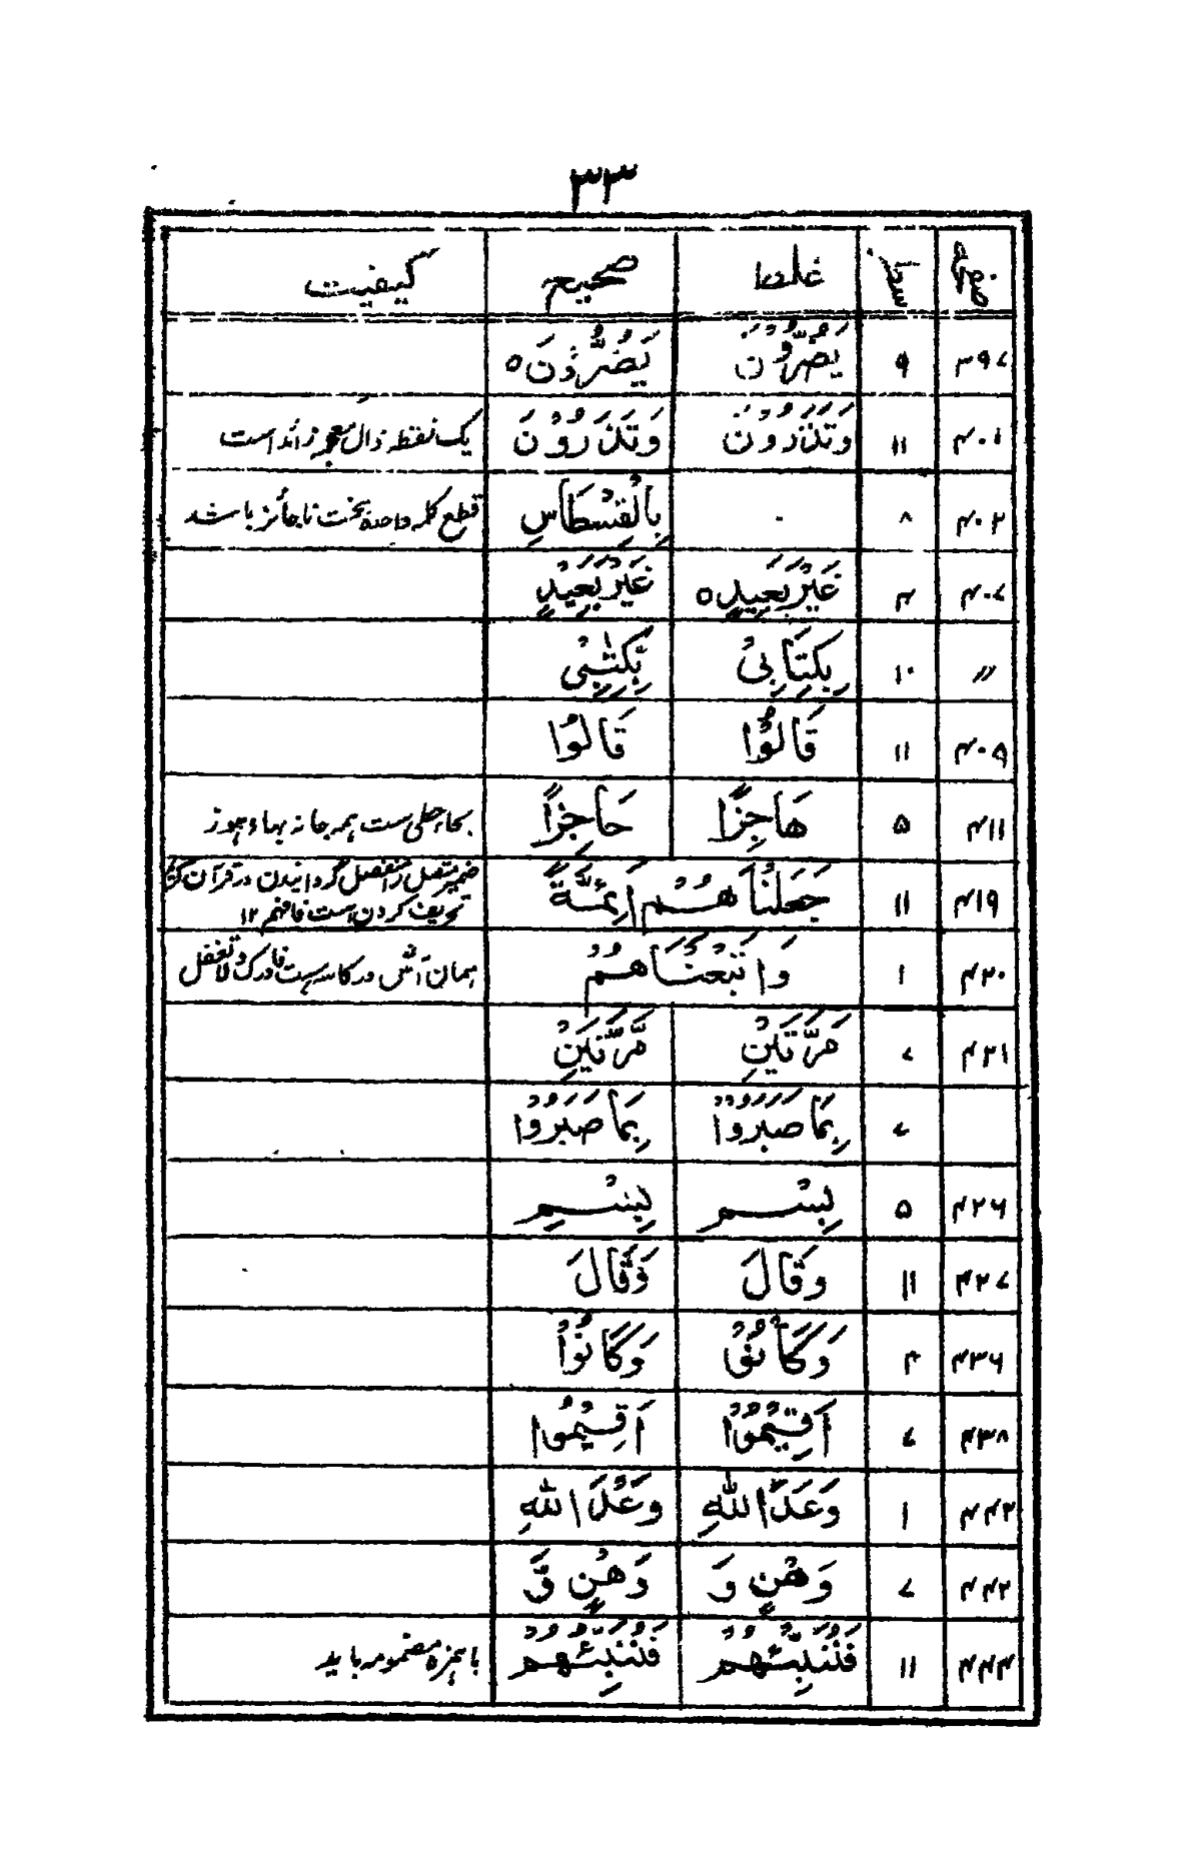 ۳۳
صفحہ سطر غلط صحیح کیفیت
۳۹۷ ۹ يَضُرُّوْنَ يَضُرُّوْنَ ه
۴۰۱ ۱۱ وَتَذَرُوْنَ وَتَذَرُوْنَ یک نقطہ ذال معجمہ زائد است
۴۰۲ ۸ . بِالْقِسْطَاسِ قطع کلمہ واحدہ سخت ناجائز باشد
۴۰۷ ۴ غَيْرَ بَعِيْدٍ ه غَيْرَ بَعِيْدٍ
〃 ۱۰ بِكِتَابِىْ بِّكِتٰبِىْ
۴۰۵ ۱۱ قَالُوْٓا قَالُوْا
۴۱۱ ۵ هَاجِزًا حَاجِزًا بحاء حطی ست ہمہ جا نہ بہاء ہوز
۴۱۹ ۱۱ جَعَلْنَا هُمْ اَئِمَّةً ضمیر متصل را منفصل گردانیدن در قرآن
تحریف کردن است فافہم ۱۲
۴۲۰ ۱ وَاَتْبَعْنَا هُمْ ہمان آش در کاسہ است فادرک ولا تغفل
۴۲۱ ۷ مَرَّتَيْنِ مَّرَّتَيْنِ
۷ بِمَا صَبَرُوْا بِمَا صَبَرُوْا
۴۲۶ ۵ بِسْم بِسْمِ
۴۲۷ ۱۱ وقَالَ وَقَالَ
۴۳۶ ۴ وَكَانُوْ وَكَانُوْا
۴۳۸ ۷ اَقِيْمُوْا اَقِيْمُوا
۴۴۲ ۱ وَعَدَ اللهِ وَعْدَ اللهِ
۴۴۲ ۷ وَهْنٍ وَ وَهْنٍ وَّ
۴۴۴ ۱۱ فَنُنَبِّئُهُمْ فَنُنَبِّئُهُمْ با ہمزہ مضمومہ باید